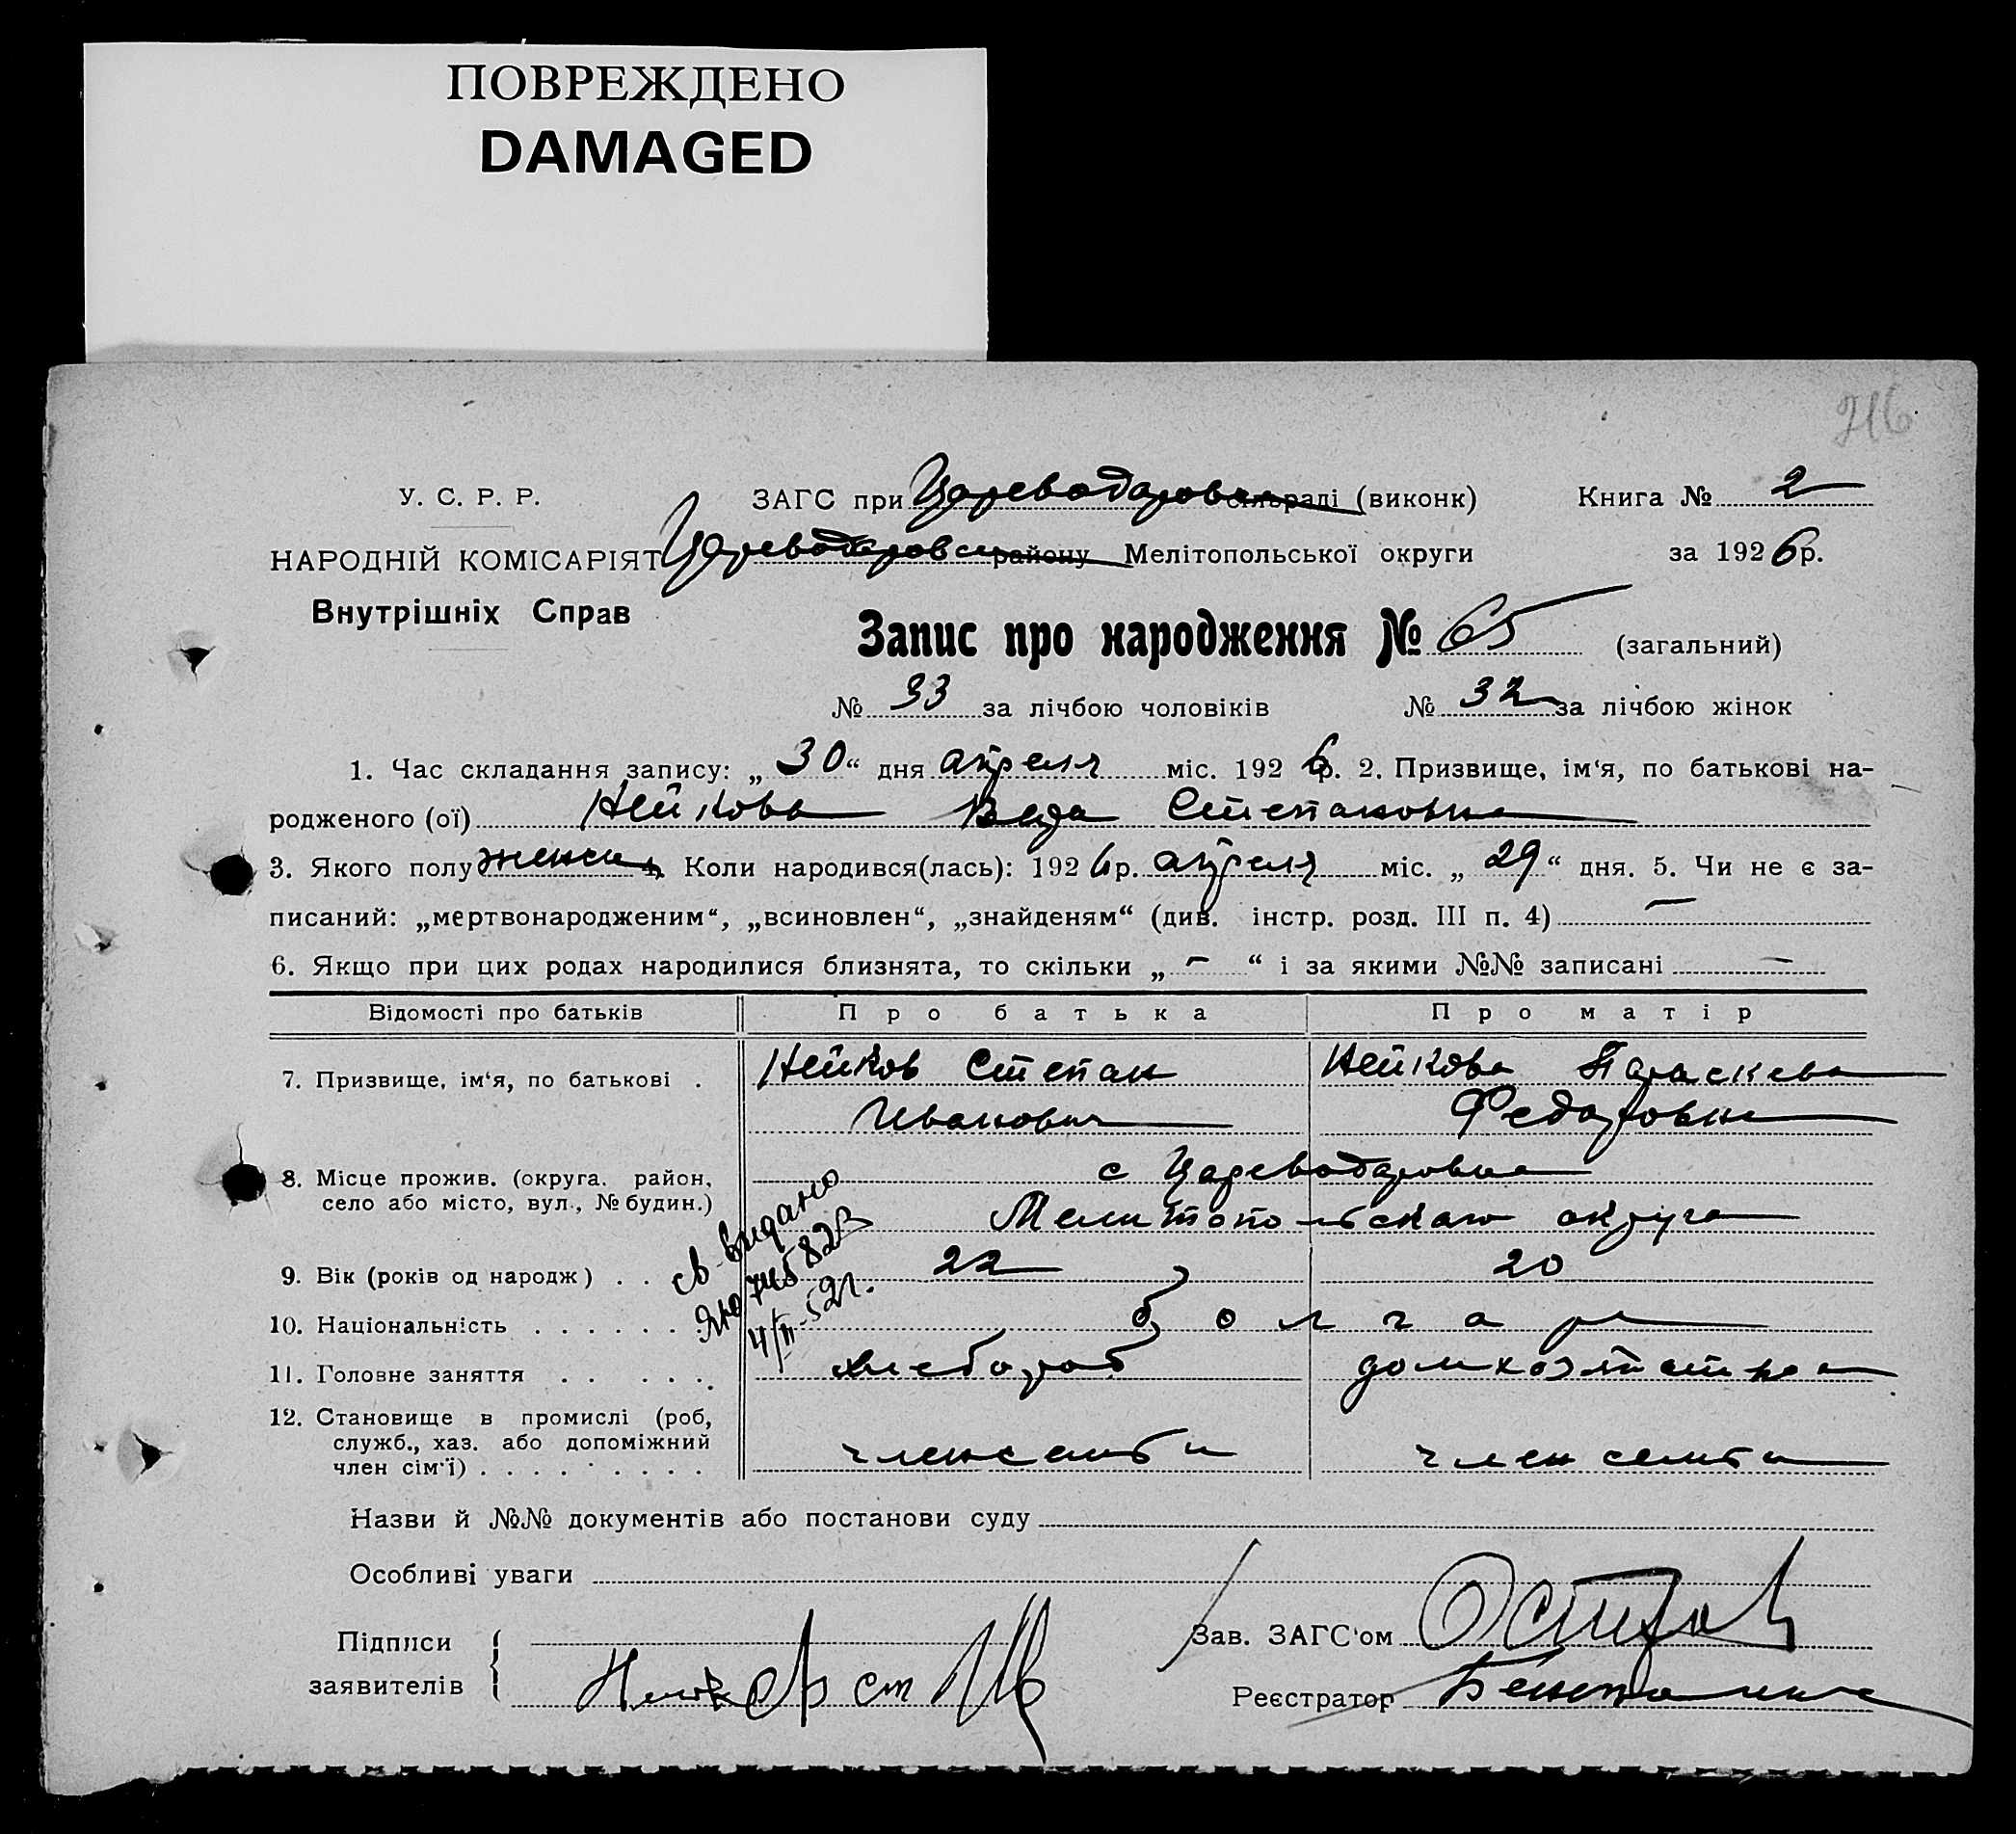 ПОВРЕЖДЕНО
DAMAGED
У. С. Р. Р. ЗАГС при Цареводаровка сільраді (виконк) Книга № 2
НАРОДНІЙ КОМІСАРІЯТ Цареводаровск району Мелітопольської округи за 1926р.
Внутрішніх Справ
Запис про народження № 65 (загальний)
№ 33 за лічбою чоловіків № 32 за лічбою жінок
1. Час складання запису: „ 30 “ дня апреля міс. 1926р. 2. Призвище, ім‘я, по батькові на-
родженого (ої) Нейкова Степановна
3. Якого полу женск 4. Коли народився(лась): 1926р. апреля міс. „ 29 “ дня. 5. Чи не є за-
писаний: „мертвонародженим“, „всиновлен“, „знайденям“ (див. інстр. розд. III п. 4) —
6. Якщо при цих родах народилися близнята, то скільки „ – “ і за якими №№ записані —
Відомості про батьків Про батька Про матір
7. Призвище, ім‘я, по батькові . Нейков Степан Нейкова Параскева
Иванович Федоровна
8. Місце прожив. (округа. район, с Цареводаровка
село або місто, вул., № будин.) Мелитопольскаго округа
9. Вік (років од народж) . . 22 20
св. видано
ЯЮ 745823
4/II-52г.
10. Національність . . . . . . болгаре
11. Головне заняття . . . . . . хлебороб домхозяистка
12. Становище в промислі (роб,
служб., хаз. або допоміжний
член сім‘ї) . . . . . . . . . член семьи член семьи
Назви й №№ документів або постанови суду
Особливі уваги
Підписи Зав. ЗАГС‘ом
заявителів Нейков Ст Ив Реєстратор